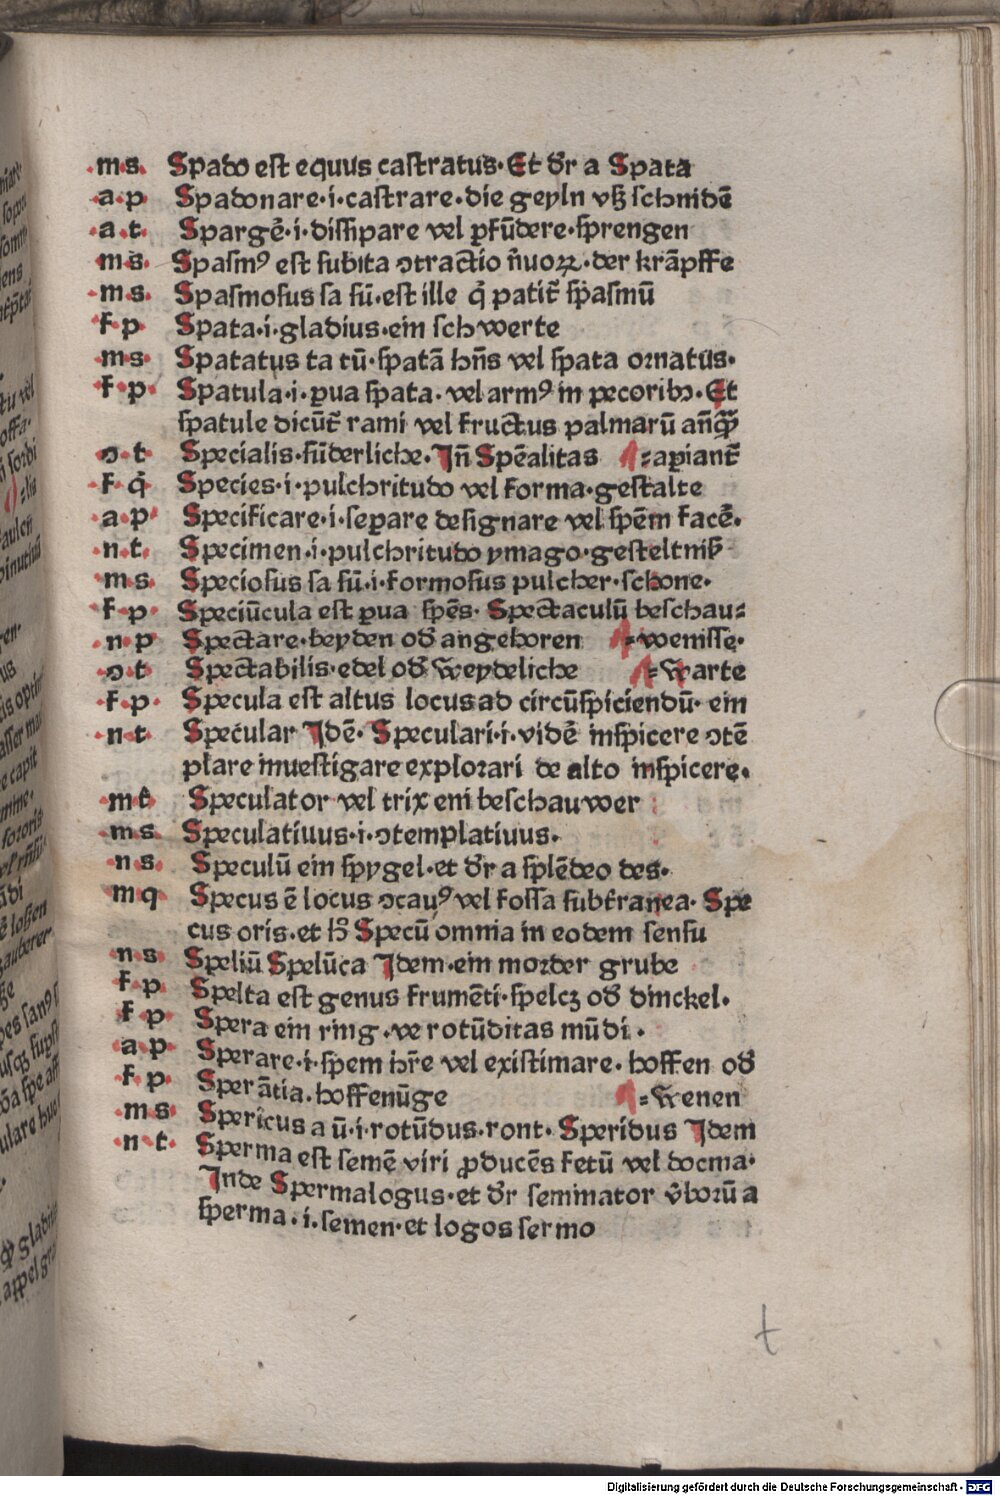 ·m·s· Spado est equus castratus·Et dr̄ a Spata
·a·p Spadonare·i·castrare·die geyln vß schnidē
·a·t· Spargē·i·dissipare vel ꝓfūdere·sprengen
m·s· Spasmꝰ est subita ↄtractio ň̄uoꝝ·der krāpffe
·m·s· Spasmosus sa sū·est ille q̇ patit̄ spasmū
f·p· Spata·i·gladius·ein schwerte
·m·s· Spatatus ta tū·spatā hn̄s vel spata ornatus·
f·p· Spatula·i·ꝑua spata·vel armꝰ in pecoribꝫ·Et
spatule dicūt̄ rami vel fructus palmarū an̄q̄ꝫ
ↄ·t Specialis·sūderliche·Jn̄ Spēalitas =apiant̄
f·q̇ Species·i·pulchritudo vel forma·gestalte
·a·p· Specificare·i·seꝑare designare vel spēm facē·
·n·t· Specimen·i·pulchritudo ymago·gesteltniß
m·s· Speciosus sa sū·i·formosus pulcher·schone·
f·p· Speciūcula est ꝑua spēs·Spectaculū beschau=
·n·p Spectare·beyden od̄ angehoren =wenisse·
·ↄ·t Spectabilis·edel od̄ weydeliche =warte
·f·p· Specula est altus locus ad circūspiciendū·ein
·n·t Specular Jdē·Speculari·i·vidē inspicere ↄtē
plare inuestigare explorari de alto inspicere·
·m t̄· Speculator vel trix eni beschauwer
·m s· Speculatiuus·i·ↄtemplatiuus·
n s· Speculū ein spygel·et dr̄ a splēdeo des·
m q Specus ē locus ↄcauꝰ vel fossa subt̄ranea·Spe
cus oris·et hȝ Specū omnia in eodem sensu
·n·s· Speliū Spelūca Jdem·ein morder grube
f·p· Spelta est genus frumēti·spelcz od̄ dinckel·
f·p· Spera ein ring·ve rotūditas mūdi·
·a·p· Sperare·i·spem hr̄e vel existimare·hoffen od̄
f·p· Sperātia·hoffenūge =wenen
·m s· Spericus a ū·i·rotūdus·ront·Speridus Jdem
·n·t· Sperma est semē viri ꝓducēs fetū vel docma·
Jnde Spermalogus·et dr̄ seminator v̄borū a
sperma·i·semen·et logos sermo
t
Digitalisierung gefördert durch die Deutsche Forschungsgemeinschaft - DFG